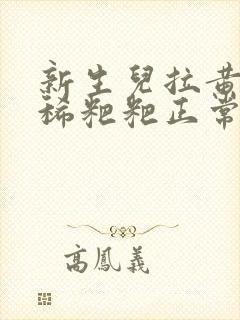 新生兒拉黃
稀粑粑正常
高鳳義